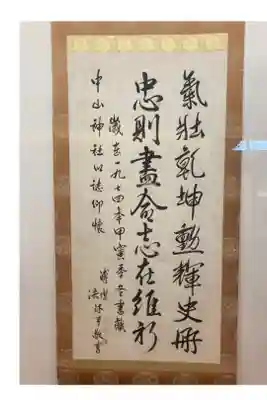 氣壯乾坤勳輝史册
忠則盡命志在維新
歲在一九七四年甲寅春書獻
中山神社以誌仰懷
敬書